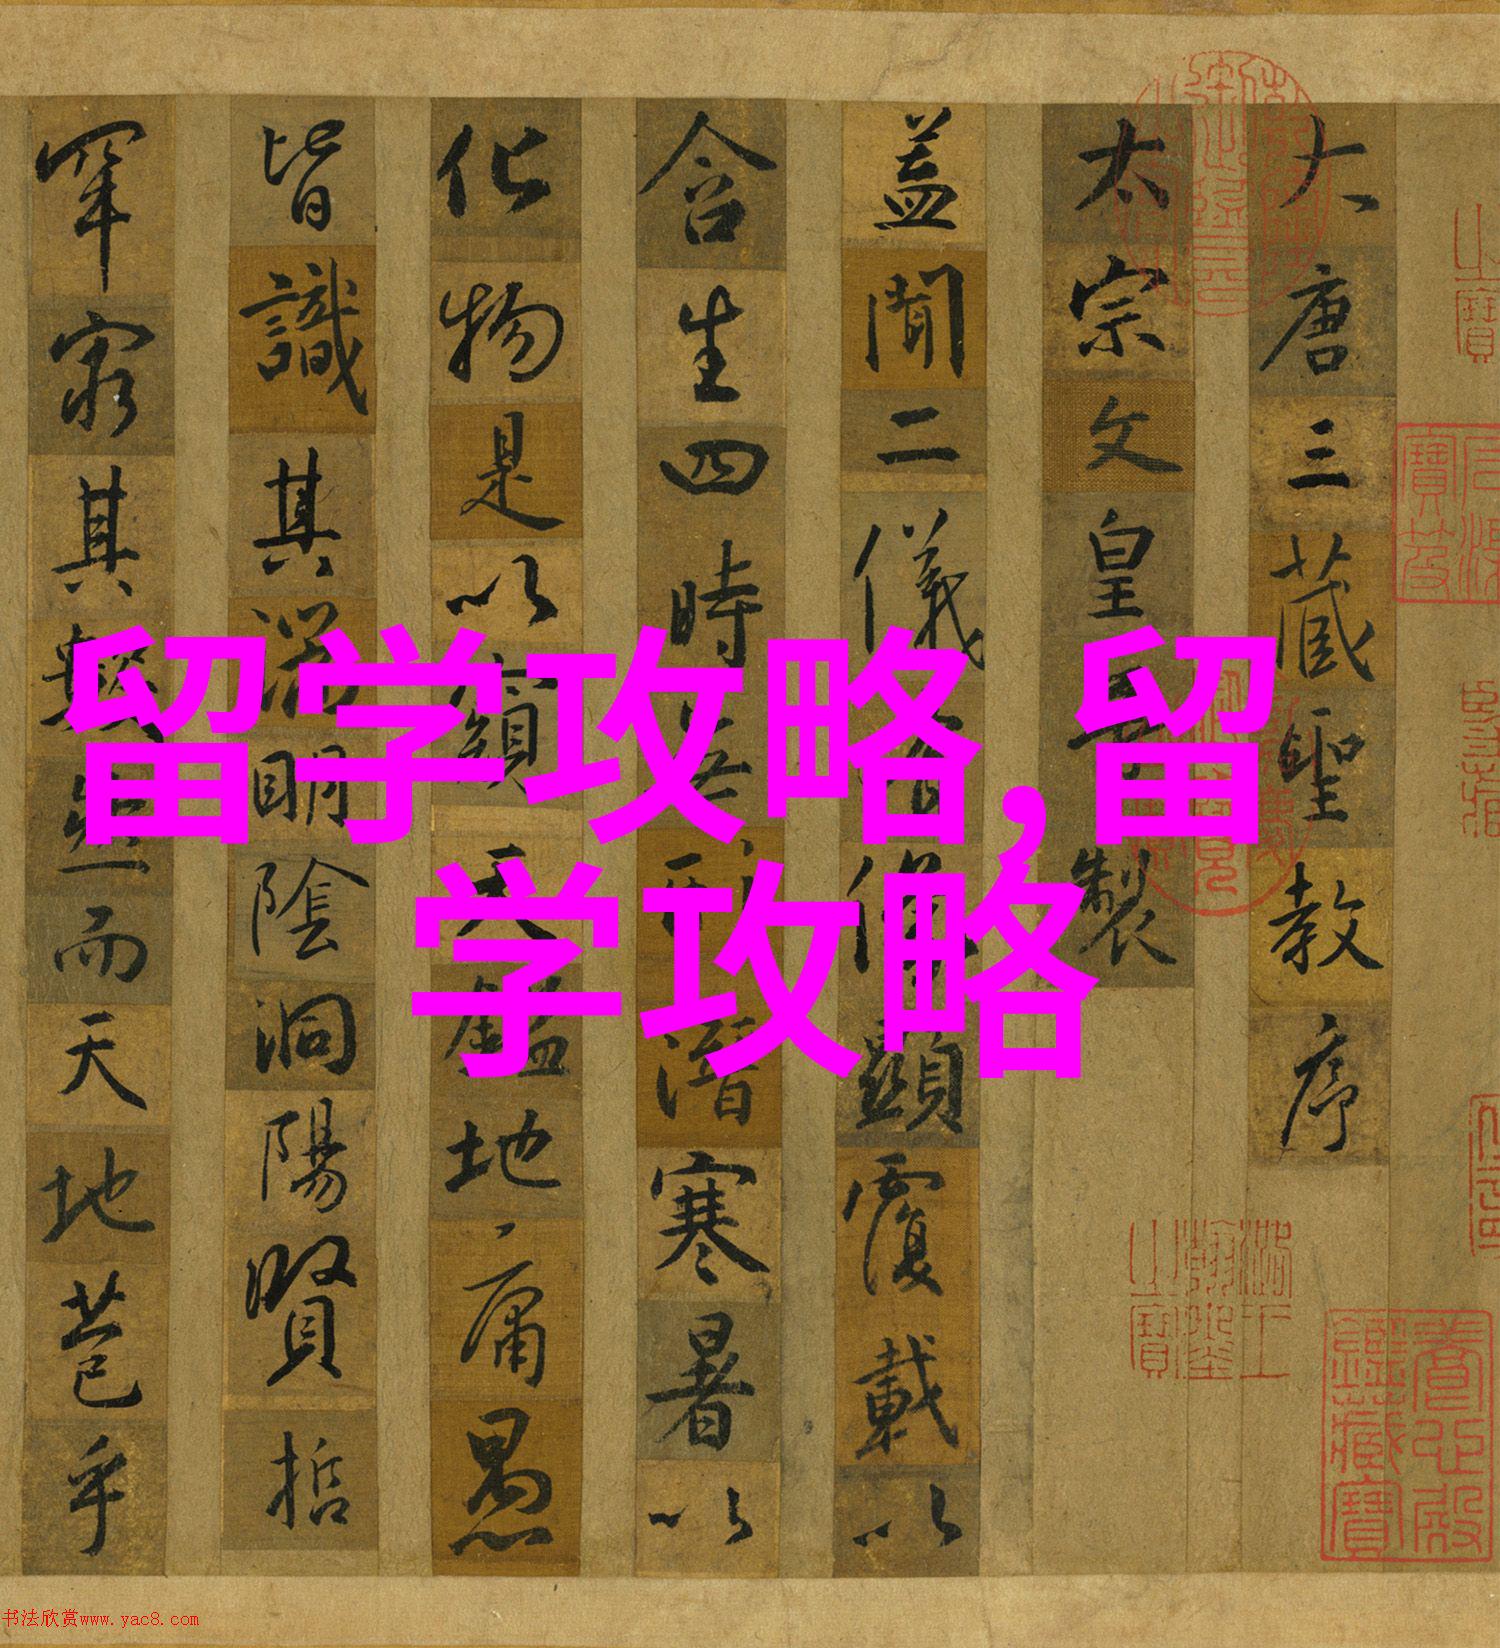 留学攻略,留
学攻略
大唐三藏聖教序
太宗文皇帝製
盖聞二儀有像顯覆載以
含生四時無形潛寒暑以
化物是以窺天鑑地庸愚
皆識其端明陰洞陽賢哲
罕窮其數然而天地苞乎
養心殿鑑藏寶
书法欣赏www.yac8.com